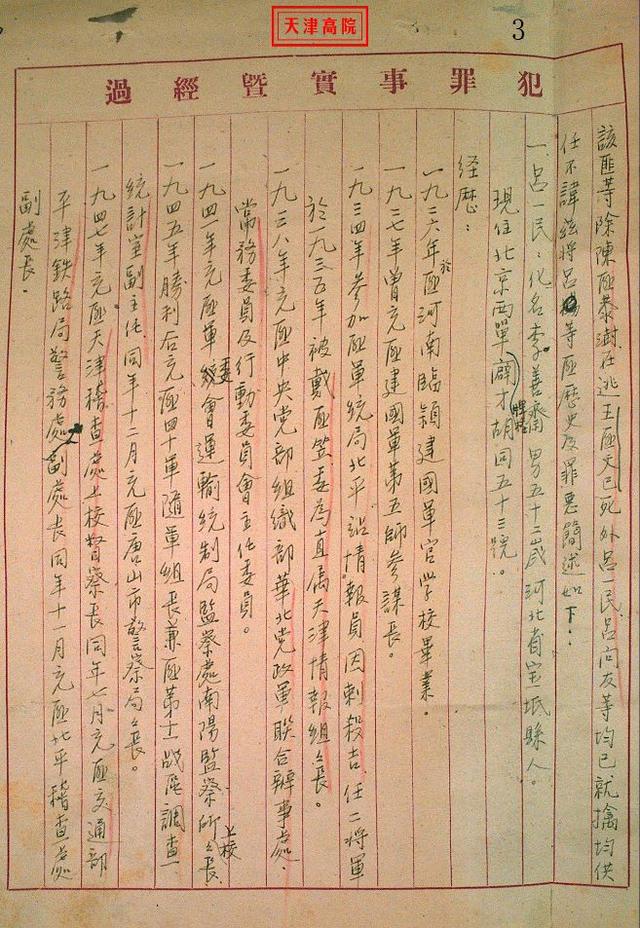 天津高院
3
犯罪事實暨經過
該匪等除陳匪泰澍在逃王匪文已死外呂一民、呂向友等均已就擒均供
任不諱茲將呂等匪歷史及罪惡簡述如下：
一、呂一民：化名李善齋男五十二歲河北省宝坻縣人。
現住北京西單闢才胡同五十三號。
经歷：
一九二六年匪於河南臨潁建國軍官学校畢業。
一九二七年曾充匪建國軍第五師參謀長。
一九三四年參加匪軍統局北平站情報員因刺殺吉、任二將軍
於一九三五年被戴匪笠委為直属天津情報組々長。
一九三八年充匪中央党部組織部華北党政軍联合辦事處、
常務委員及行動委員會主任委員。
一九四一年充匪軍委會運輸統制局監察處南陽監察所上校々長
一九四五年勝利后充匪四十軍隨軍組長兼匪第十一战區調查
統計室副主任同年十二月充匪唐山市警察局々長。
一九四七年充匪天津稽查處上校督察長同年七月充匪交通部
平津鉄路局警務處副處長同年十一月充匪北平稽查處
副處長。